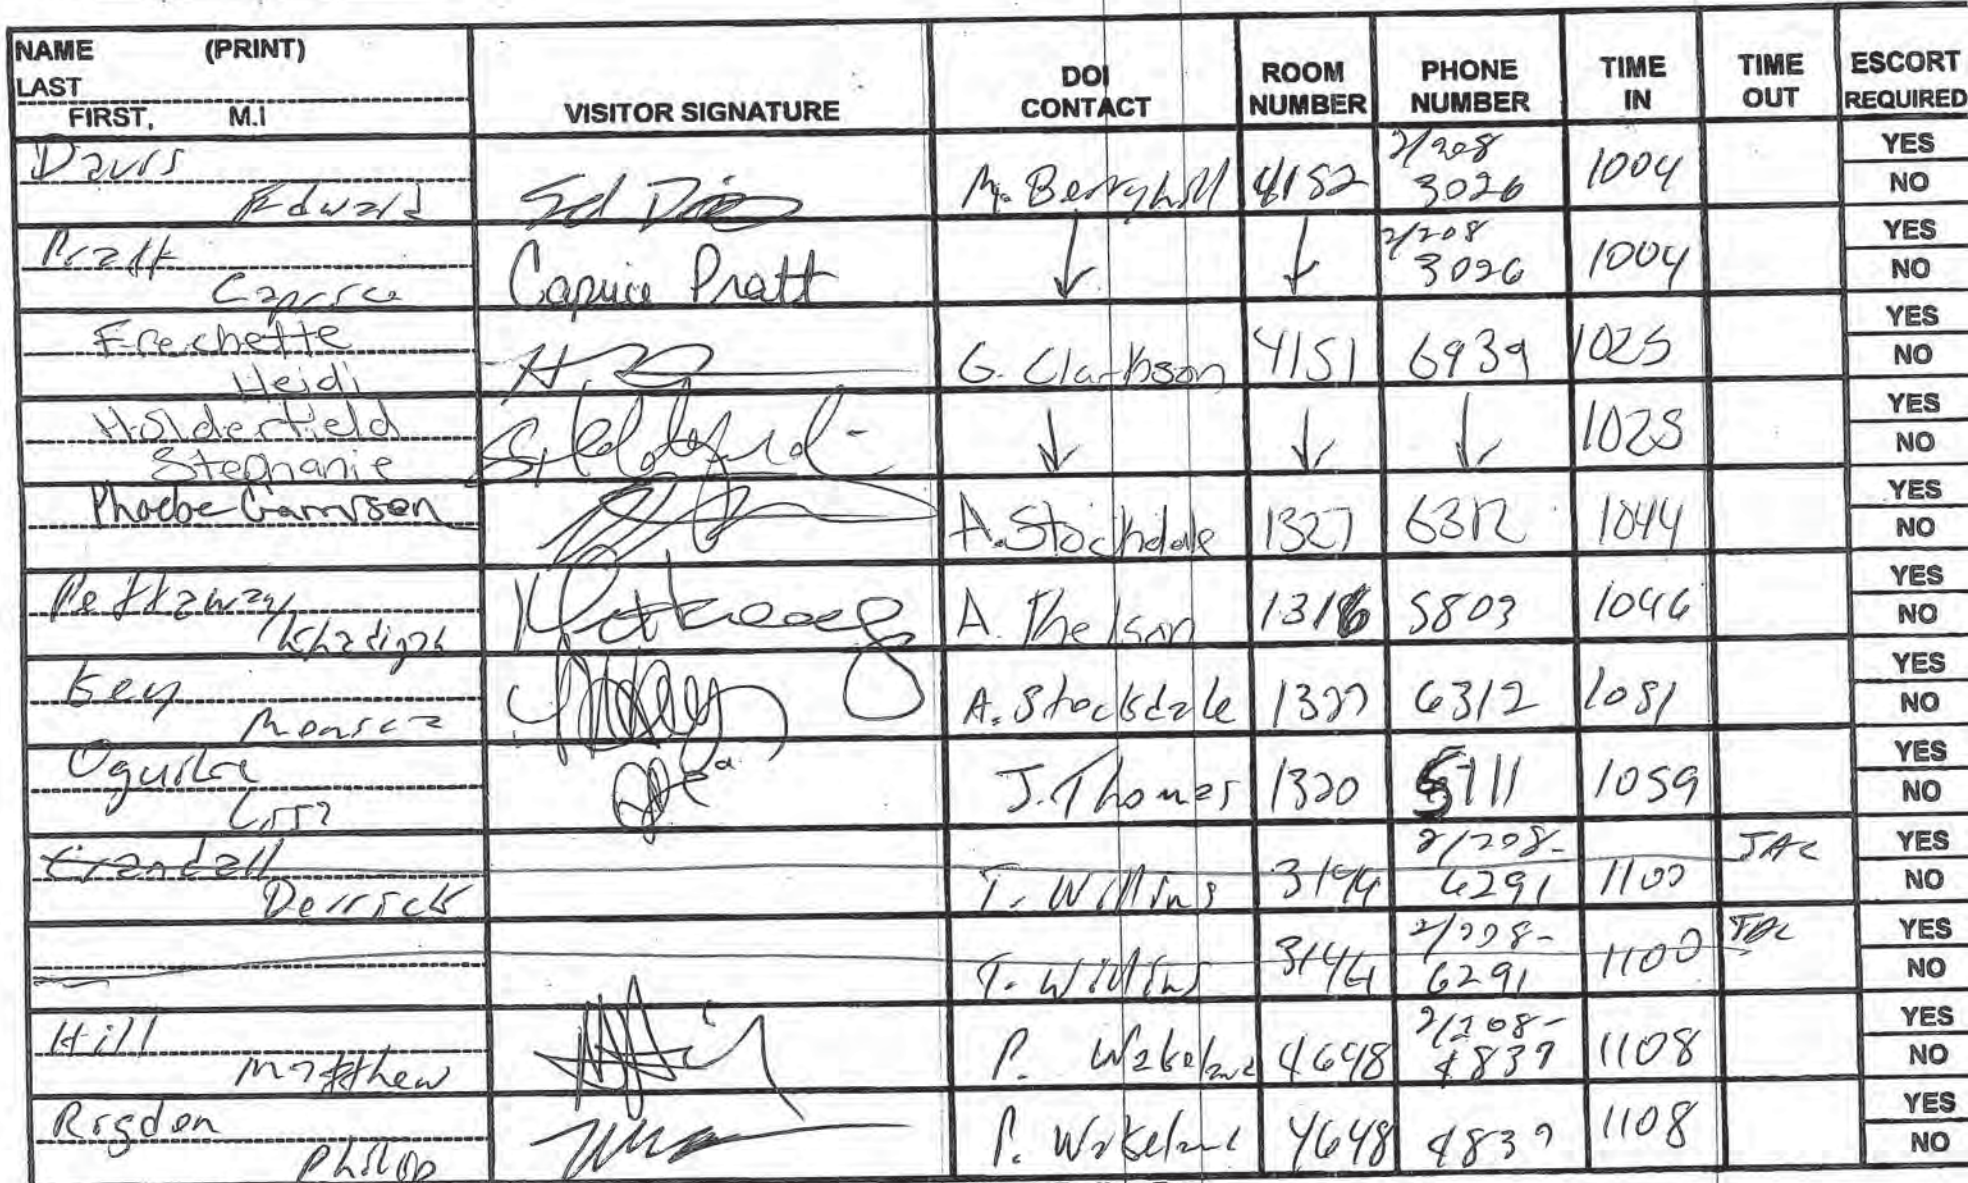 NAME (PRINT)
LAST
FIRST, M.I
VISITOR SIGNATURE
DOI CONTACT
ROOM NUMBER
PHONE NUMBER
TIME IN
TIME OUT
ESCORT REQUIRED
Davis
Edward
Ed M. Berryhill 4182 2/208 3026 1004 YES NO
Pratt
Caprice
Caprice Pratt ↓ ↓ 2/208 3026 1004 YES NO
Frechette
Heidi
G. Clarkson 4151 6939 1025 YES NO
Holderfield
Stephanie
↓ ↓ ↓ 1025 YES NO
Phoebe Garrison
A. Stockdale 1327 6312 1044 YES NO
Pettaway
Khadijah
Pettaway A. Thelson 1316 5803 1046 YES NO
Key
A. Stocksdale 1327 6312 1051 YES NO
Lisa
J. Thomas 1320 5711 1059 YES NO
Crandall
Derrick
T. Williams 3144 2/208- 6291 1100 JAC YES NO
T. Williams 3144 2/208- 6291 1100 JAC YES NO
Hill
Matthew
P. Wakeland 4648 2/208- 4837 1108 YES NO
Rigdon
Philip
P. Wakeland 4648 4837 1108 YES NO